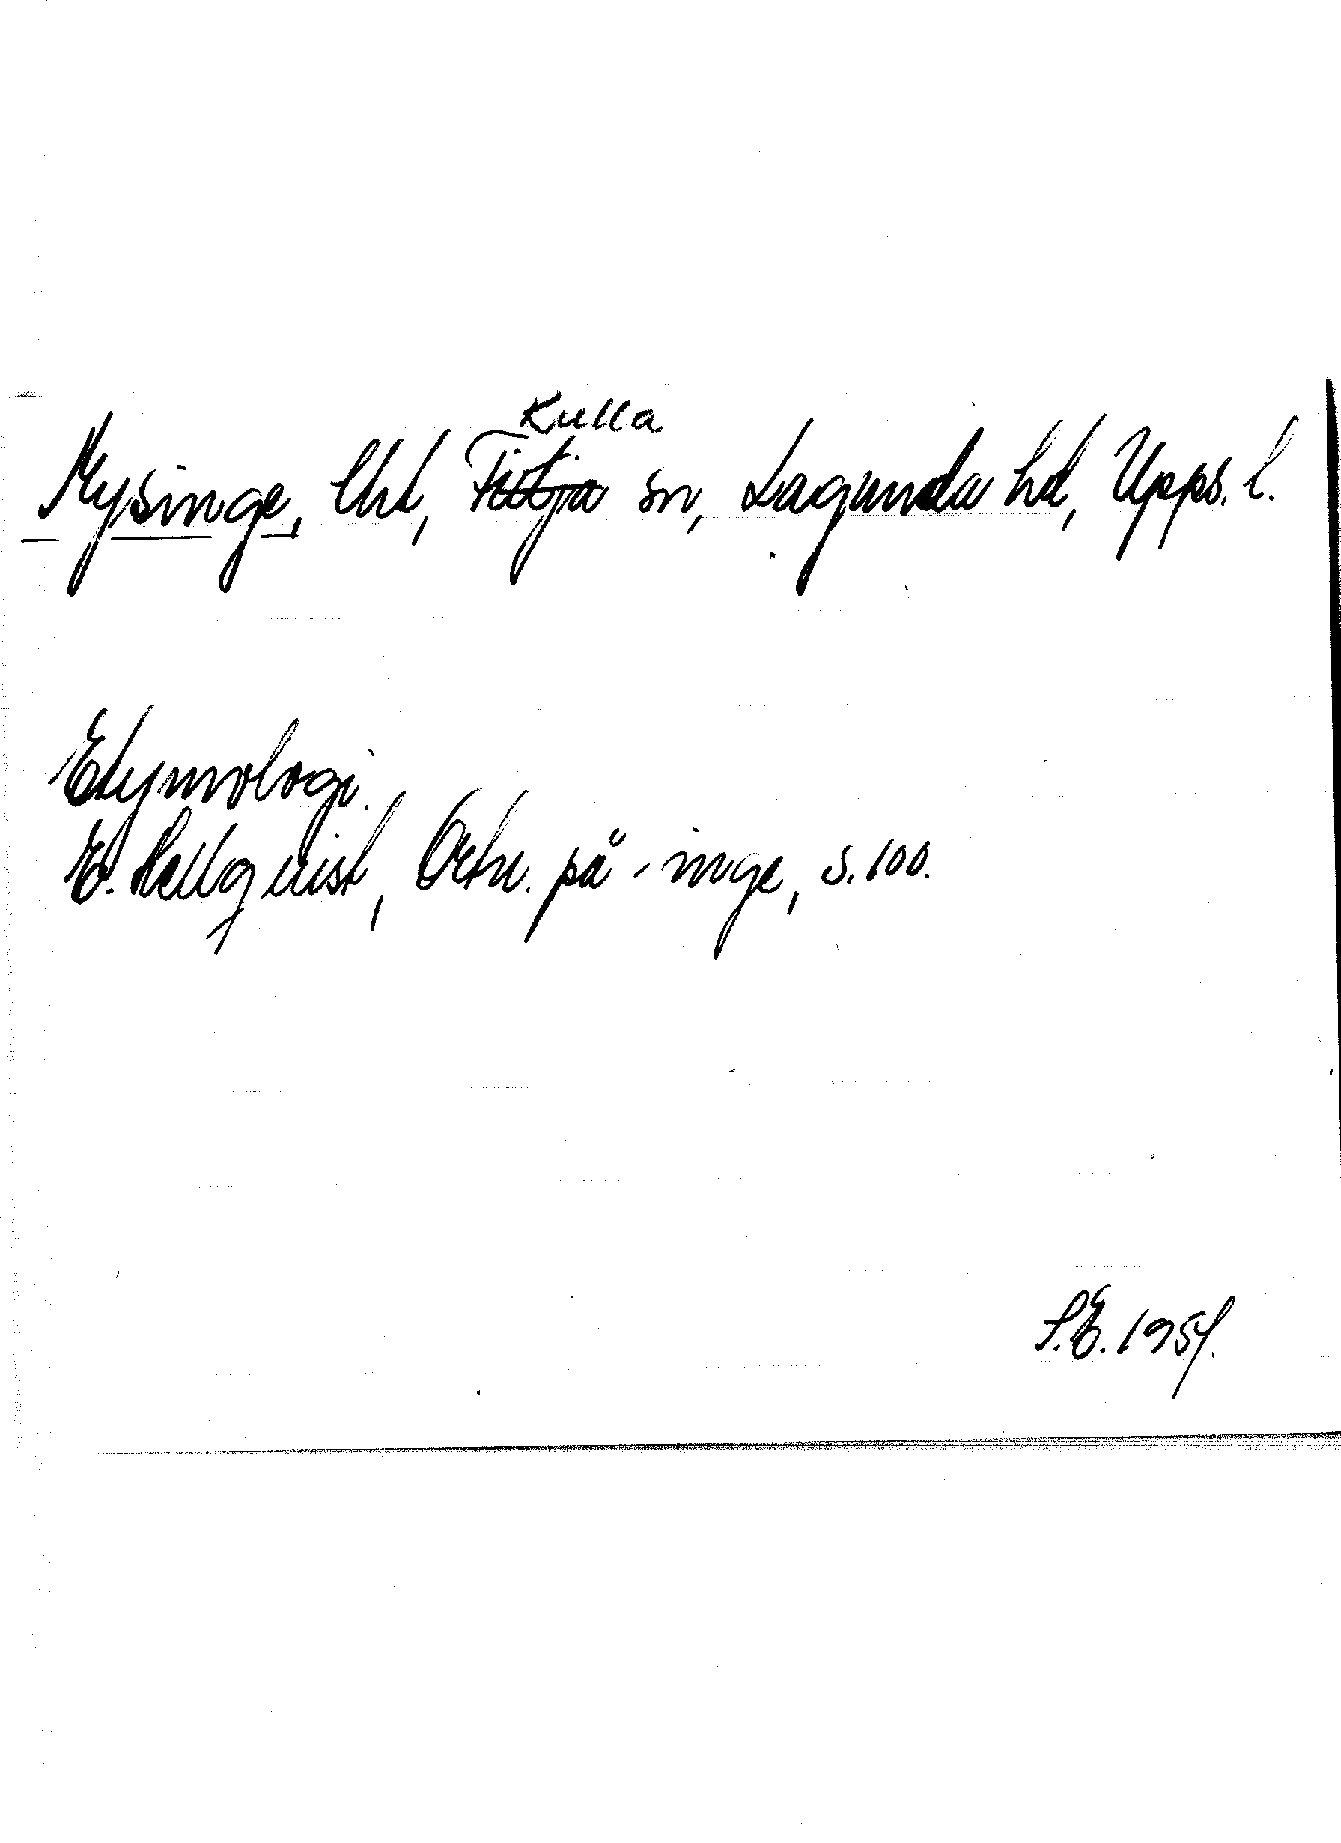 Kulla
Mysinge, Uht, Fittja sn, Lagunda hd, Upps. l.
Etymologi.
E. Hellquist, Ortn. på -inge, s. 100.
S.E. 1954.